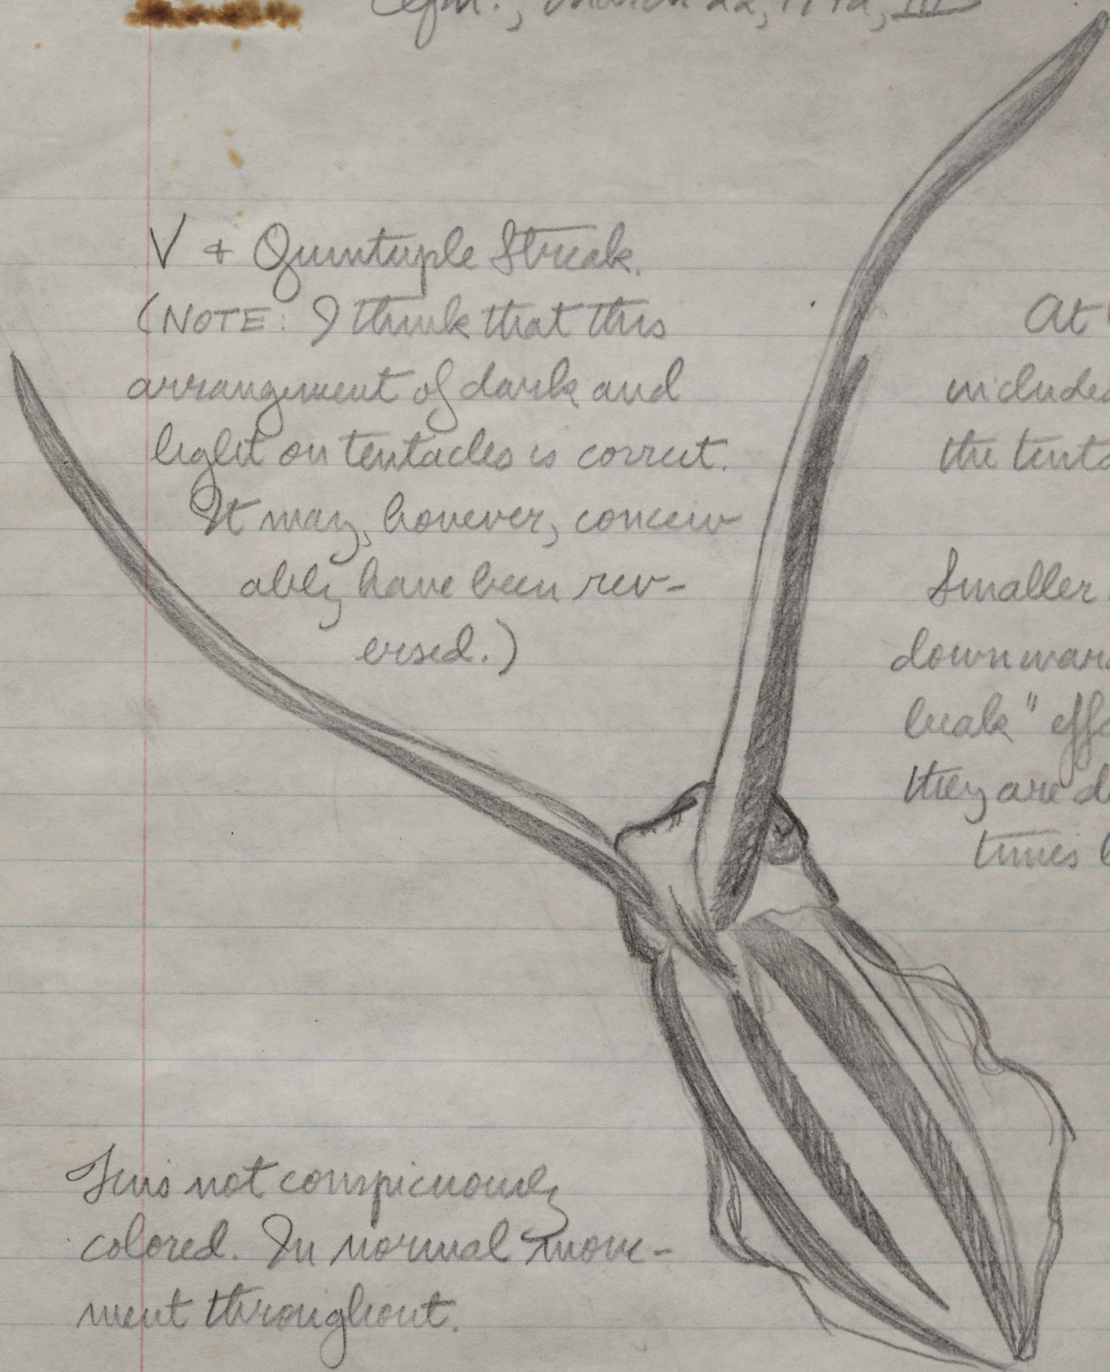 March 22, III
V + Quintuple Streak.
(NOTE: I think that this
arrangement of dark and
light on tentacles is correct.
It may, however, conceiv
ably have been rev-
ersed.)
At
included
the tenta
Smaller
downward
beak" effe
they are d
times b
Fins not conspicuously
colored. In normal move-
ment throughout.